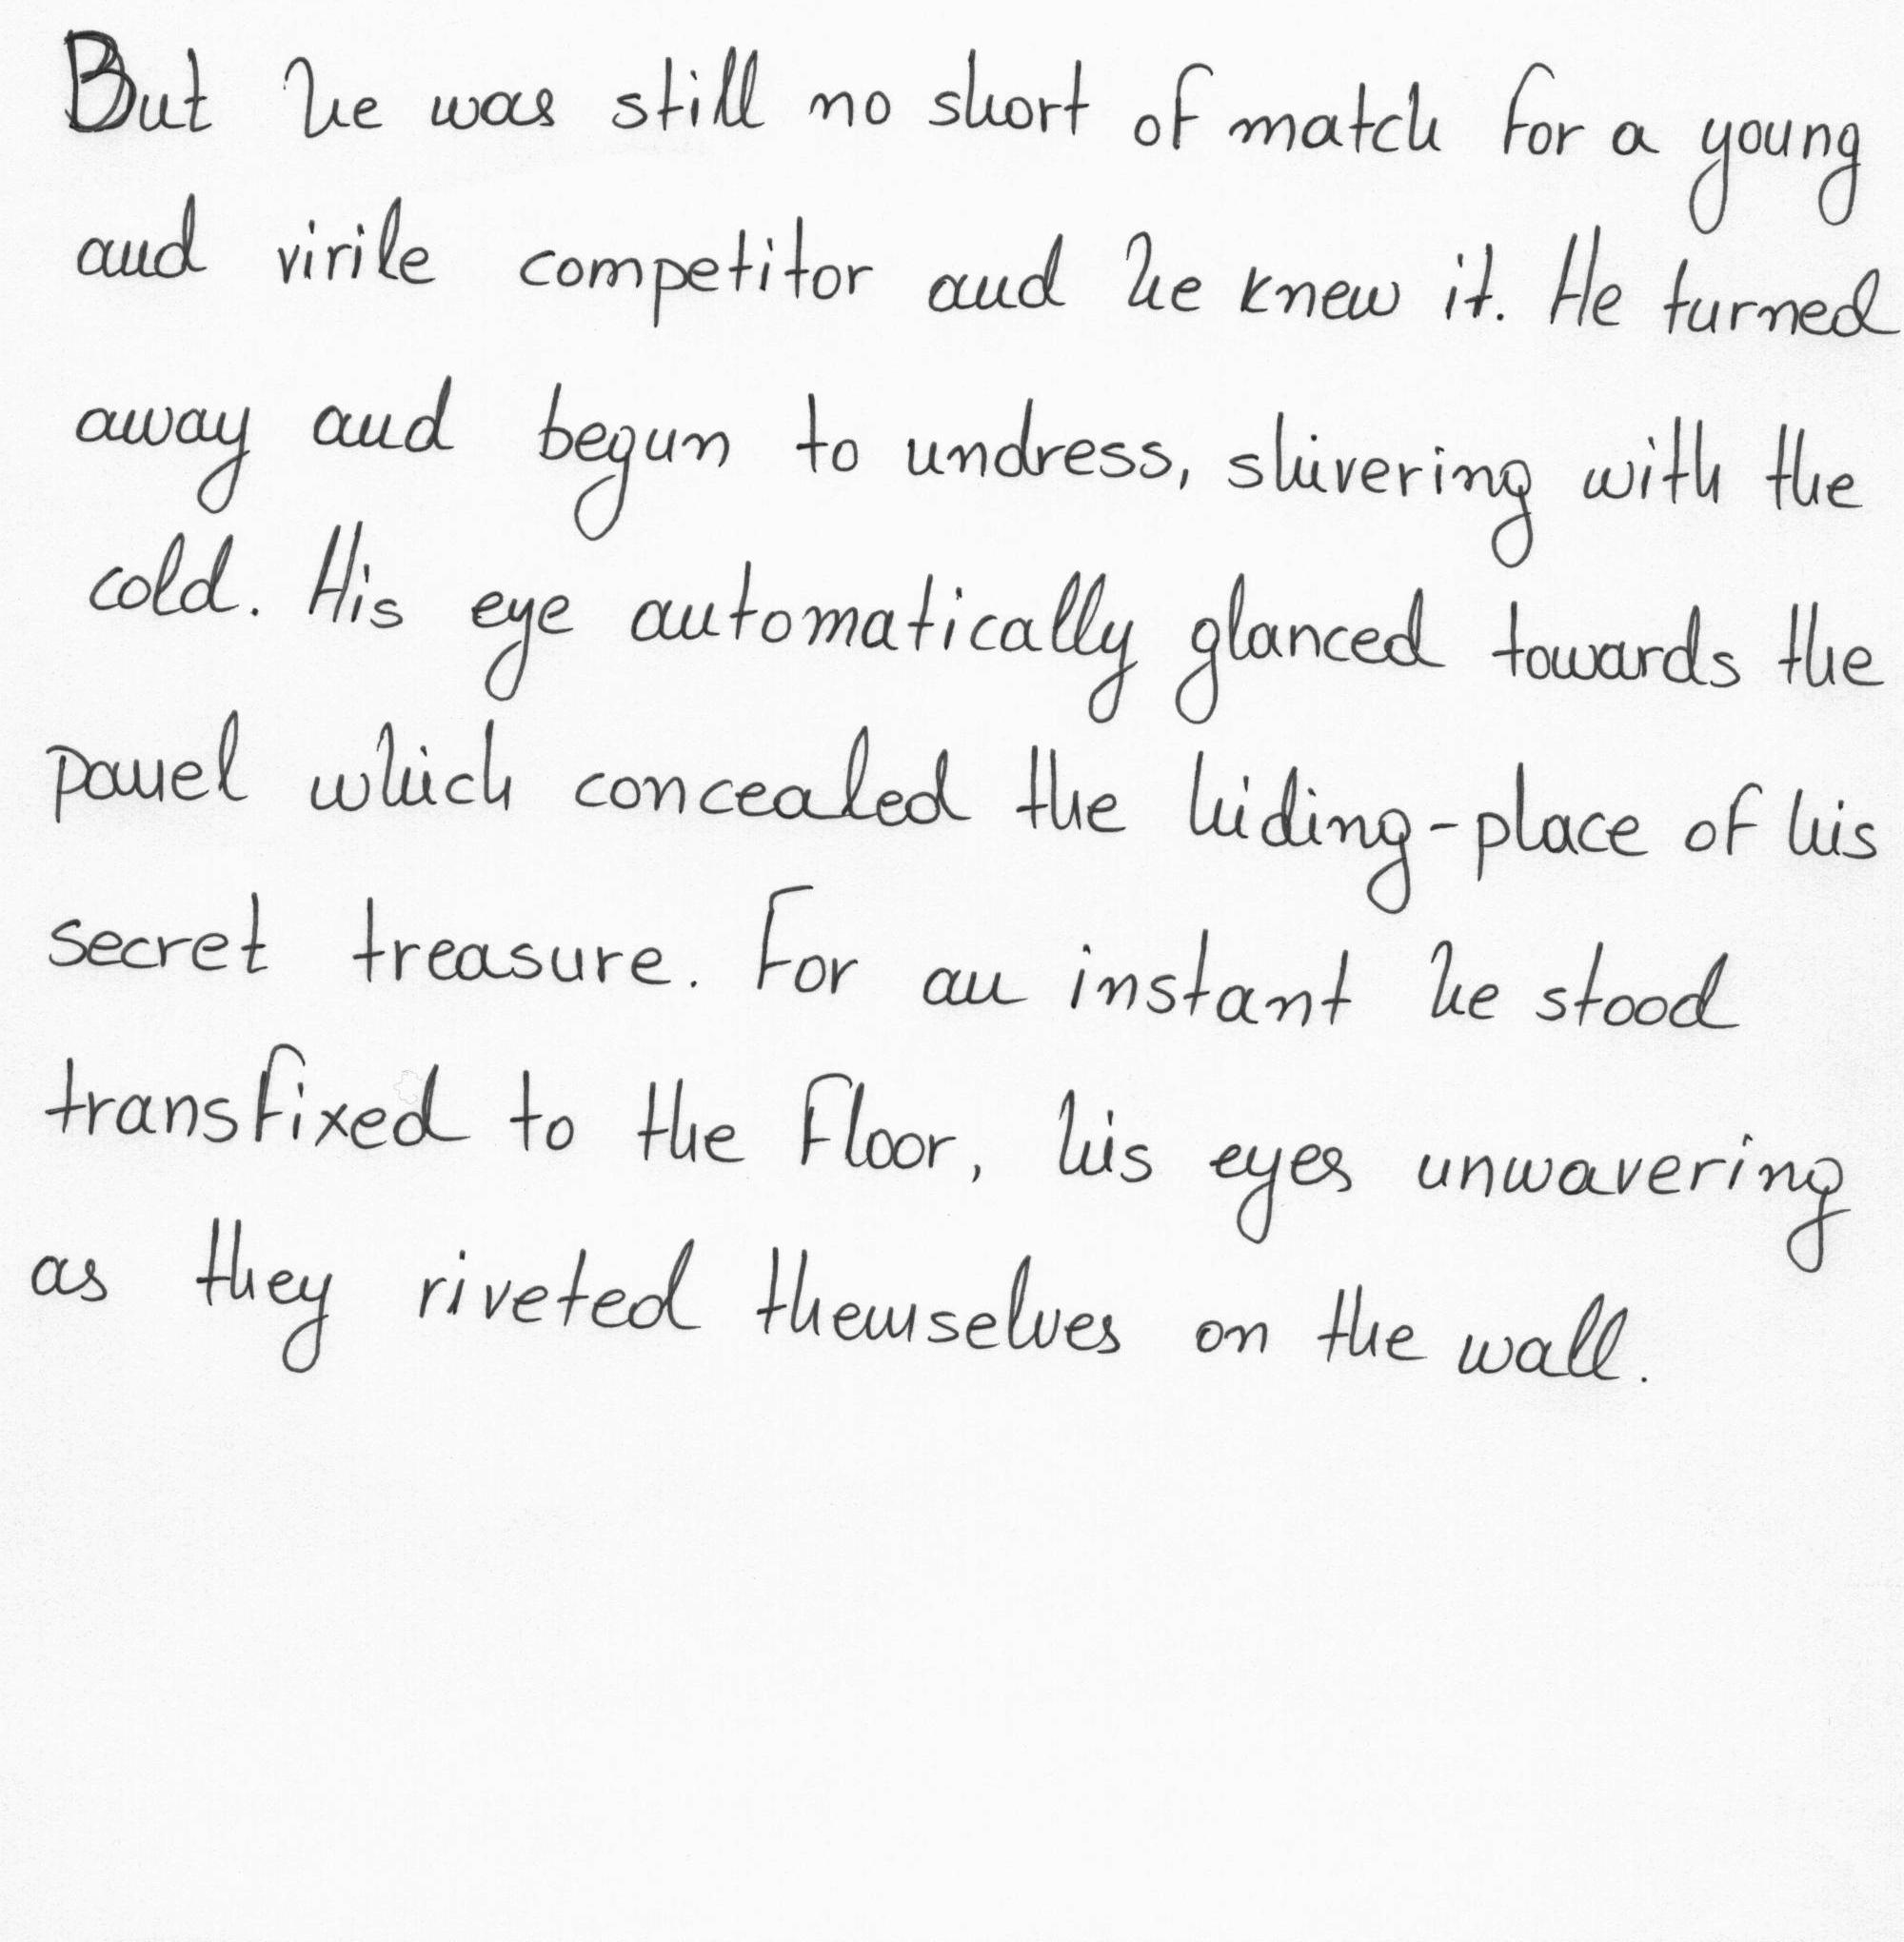 But he was still no short of match for a young
and virile competitor and he knew it. He turned
away and begun to undress, shivering with the
cold. His eye automatically glanced towards the
panel which concealed the hiding-place of his
secret treasure. For an instant he stood
transfixed to the floor, his eyes unwavering
as they riveted themselves on the wall.